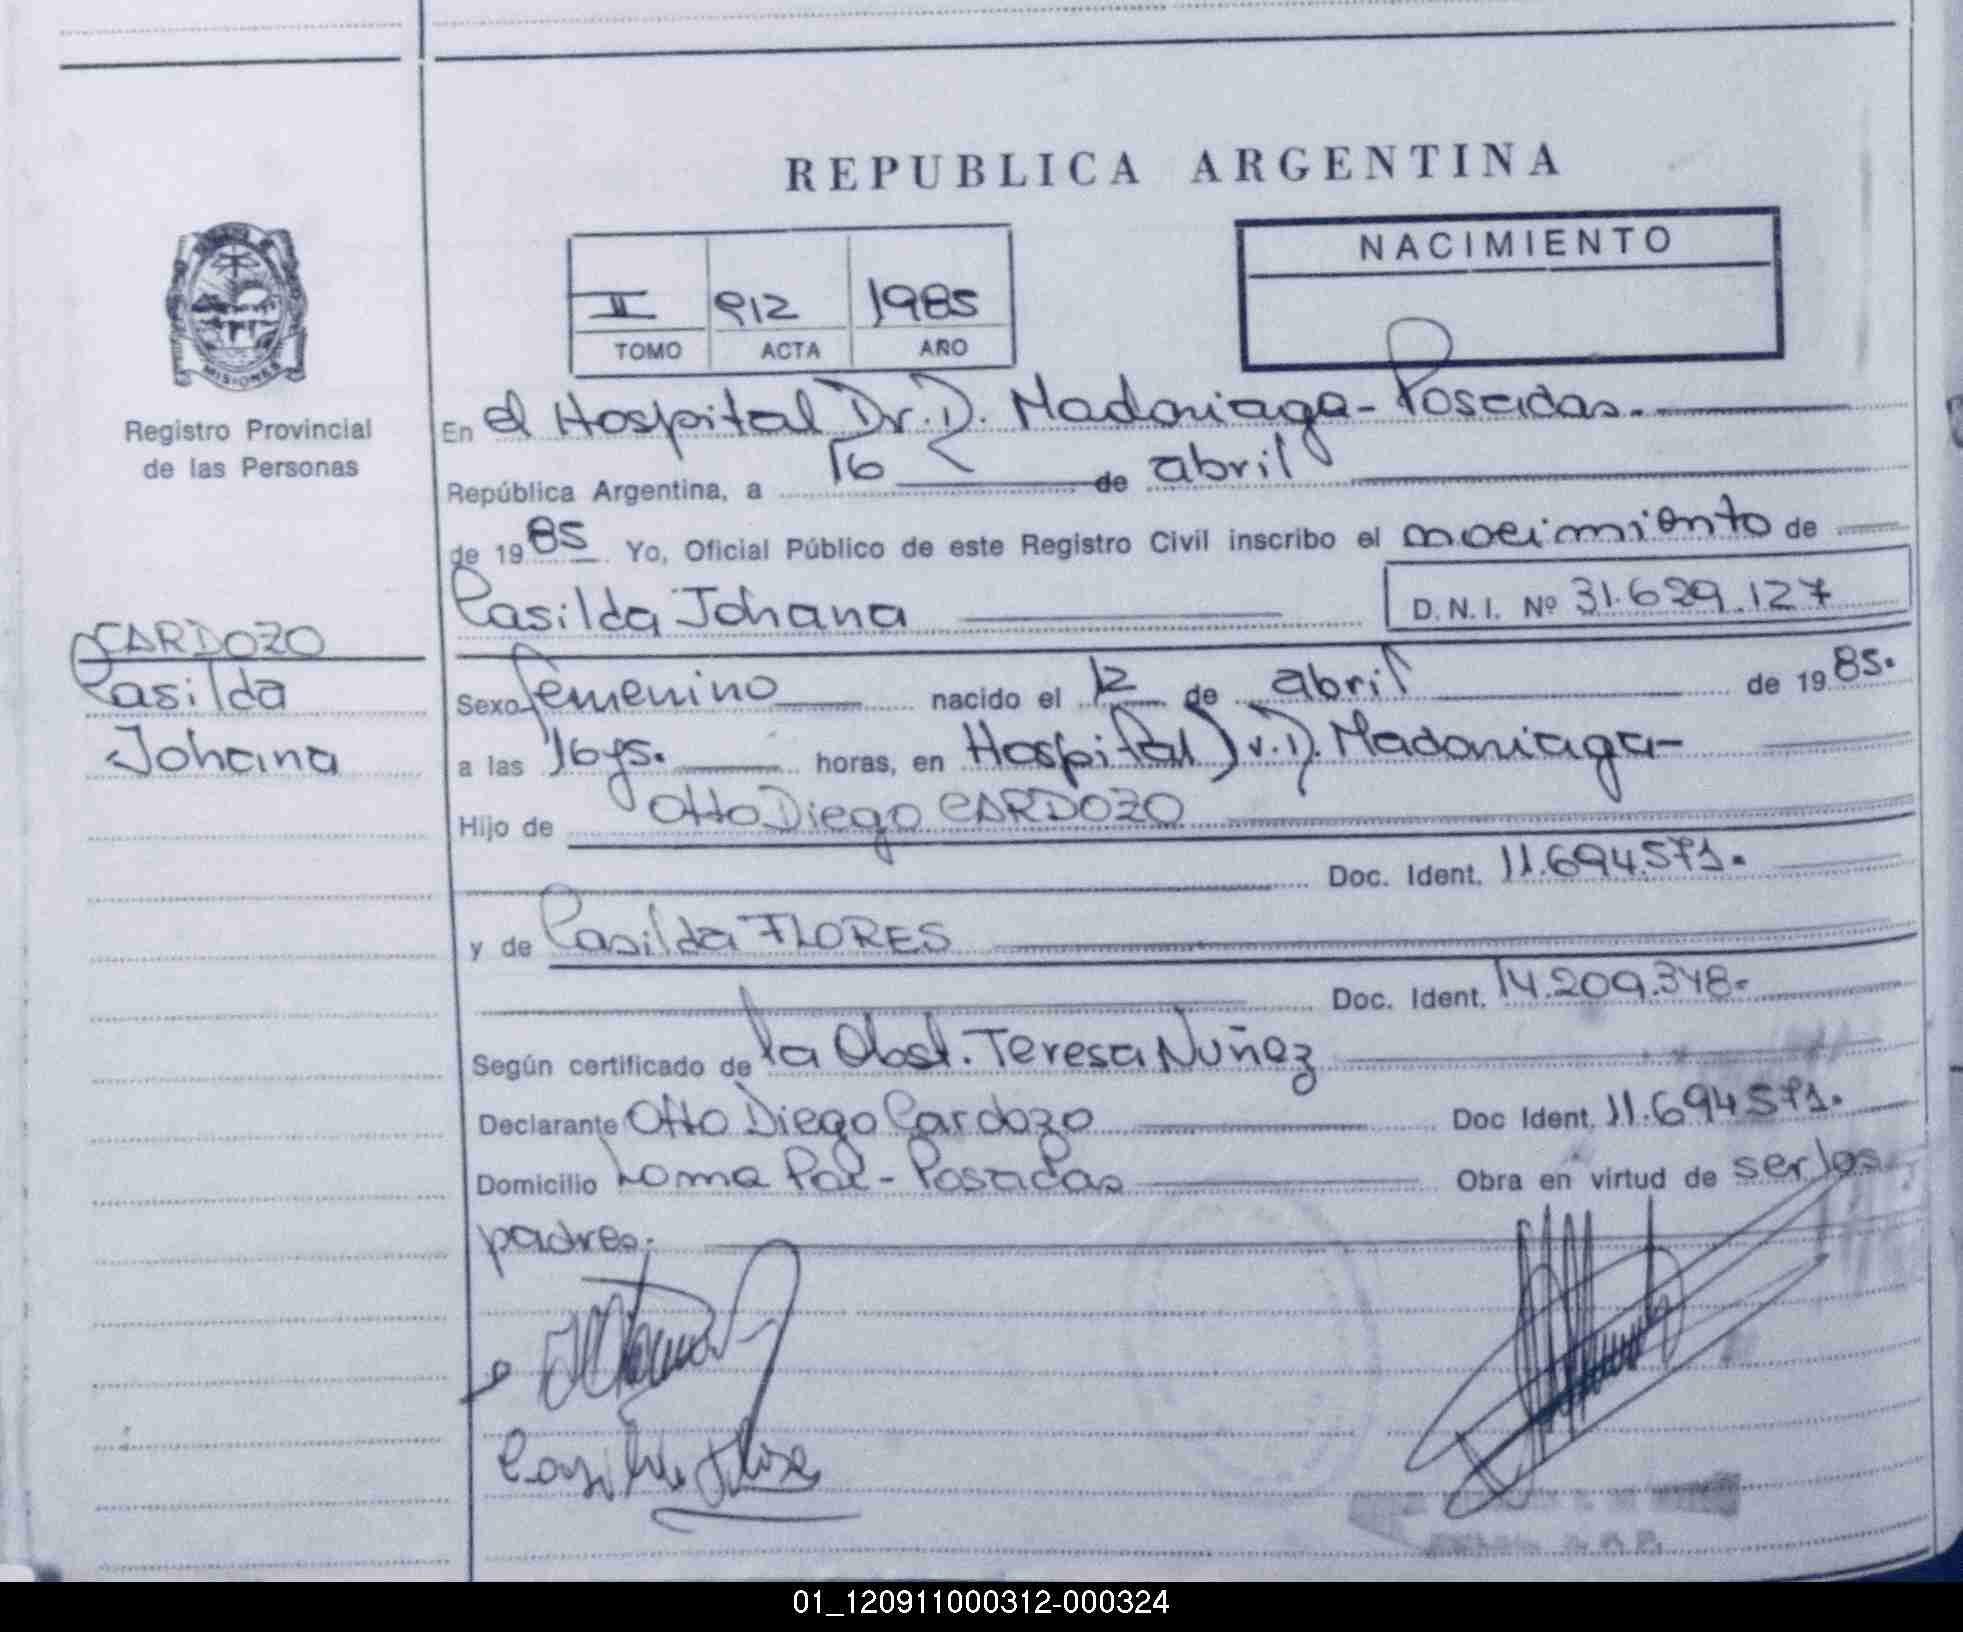 REPUBLICA ARGENTINA
NACIMIENTO
II 912 1985
TOMO ACTA AÑO
MISIONES
Registro Provincial
de las Personas
En el Hospital Dr. D. Madariaga - Posadas.
República Argentina, a 16 de abril
de 1985 Yo, Oficial Público de este Registro Civil inscribo el nacimiento de
Casilda Johana D.N.I. Nº 31.629.127
CARDOZO
Casilda
Johana
Sexo femenino nacido el 12 de abril de 1985.
a las 16 horas, en Hospital Dr. D. Madariaga-
Hijo de Otto Diego CARDOZO
Doc. Ident. 11.694.571.
y de Casilda FLORES
Doc. Ident. 14.209.348-
Según certificado de la Obst. Teresa Nuñez
Declarante Otto Diego Cardozo Doc Ident. 11.694571.
Domicilio Loma Pol - Posadas Obra en virtud de ser los
padres.
01_120911000312-000324